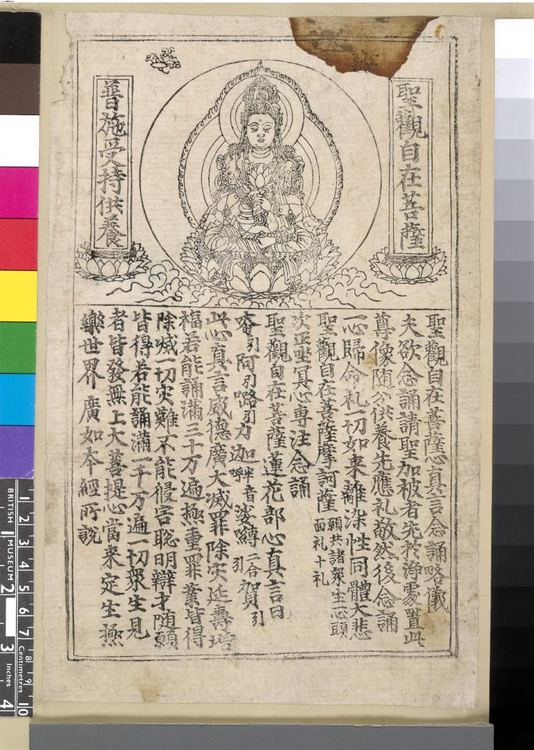 聖觀自在菩薩
普施受持供養
聖觀自在菩薩心真言念誦略儀
夫欲念誦請聖加被者先於淨處置此
尊像隨分供養先應礼敬然後念誦
一心歸命礼一切如來離染性同體大悲
聖觀自在菩薩摩訶薩 願共諸衆生一心頭
面礼十礼
次正坐冥心專注念誦
聖觀自在菩薩蓮花部心真言曰
唵引阿引路引力迦 半音 娑嚩 二合 賀引 引
此心真言威德廣大滅罪除灾延壽增
福若能誦滿三十万遍極重罪業皆得
除滅一切灾難不能侵害聦明辯才随願
皆得若能誦滿一千万遍一切衆生見
者皆發無上大菩提心當來定生極
樂世界 廣如本經所說
BRITISH MUSEUM
1
2
3
4
5
6
7
8
9
10
Centimetres
2
3
4
Inches